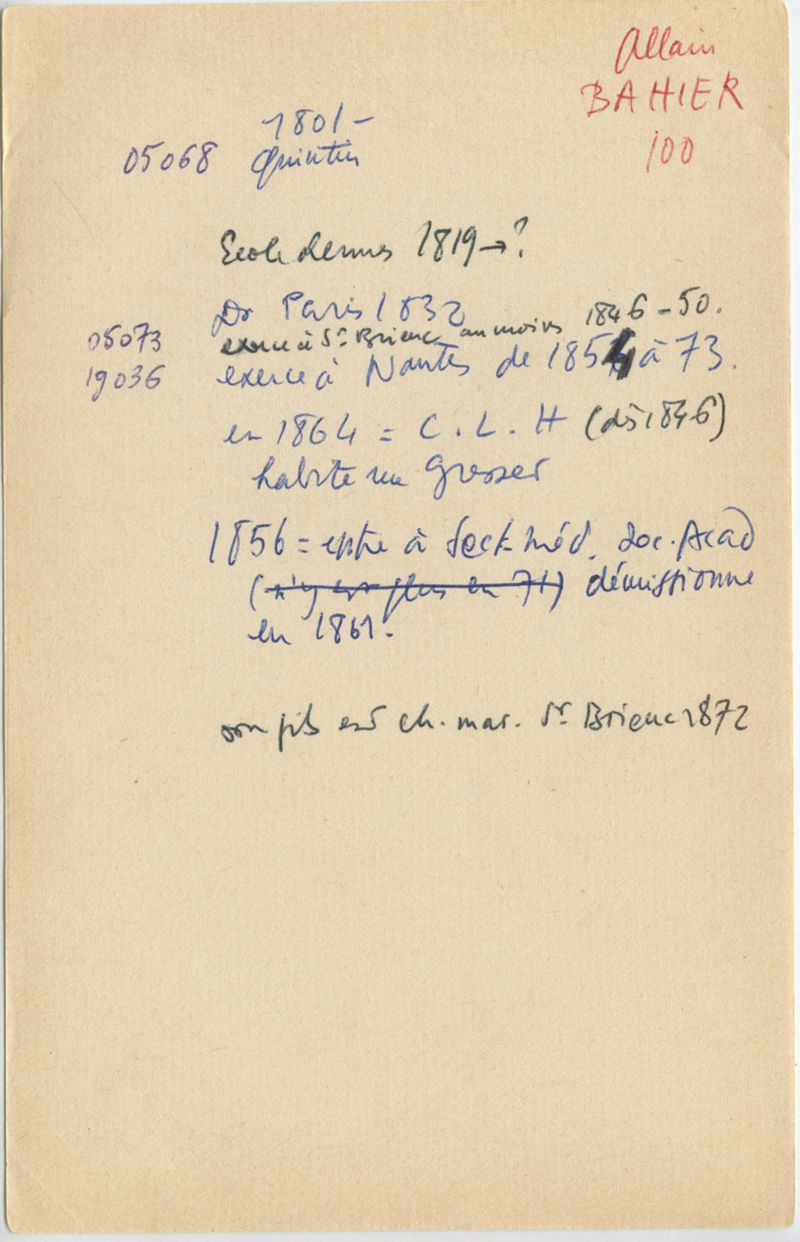 Allain
BAHIER
100
1801 -
05068 Quintin
Ecole Rennes 1819 → ?
Dr Paris 1832
05073 exerce à St Brieuc au moins 1846 - 50.
19036 exerce à Nantes de 1854 à 73.
en 1864 = C. L. H (dès 1846)
habite rue Gresset
1856 = entre à Sect. Méd. Soc. Acad
(n'y est plus en 71) démissionne
en 1861.
son fils est ch. mar. St Brieuc 1872